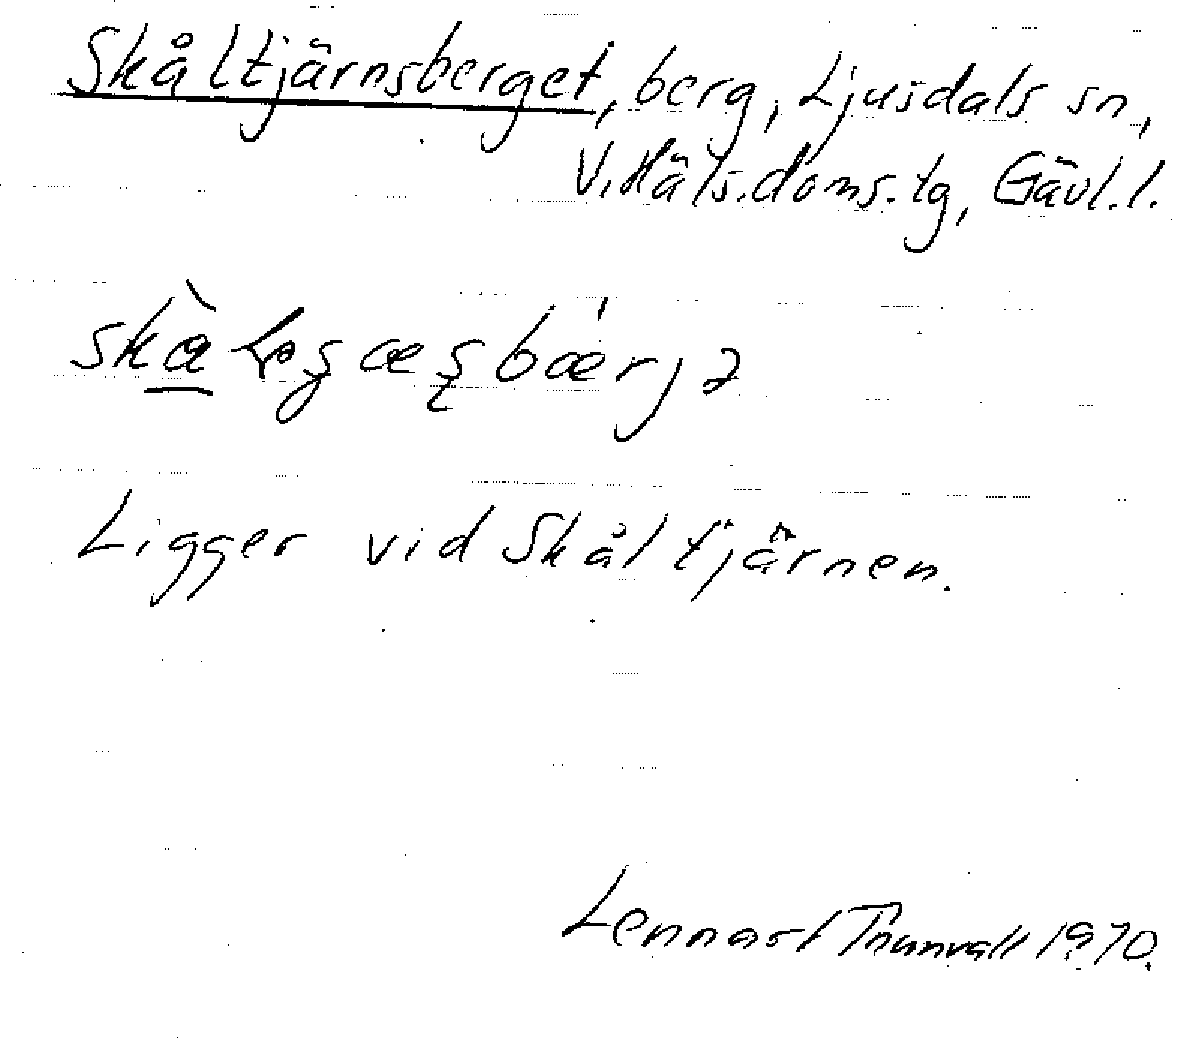 Skåltjärnsberget, berg, Ljusdals sn,
V. Häls. doms. tg, Gävl. l.
Ligger vid Skåltjärnen.
Lennart Thunvall 1970.